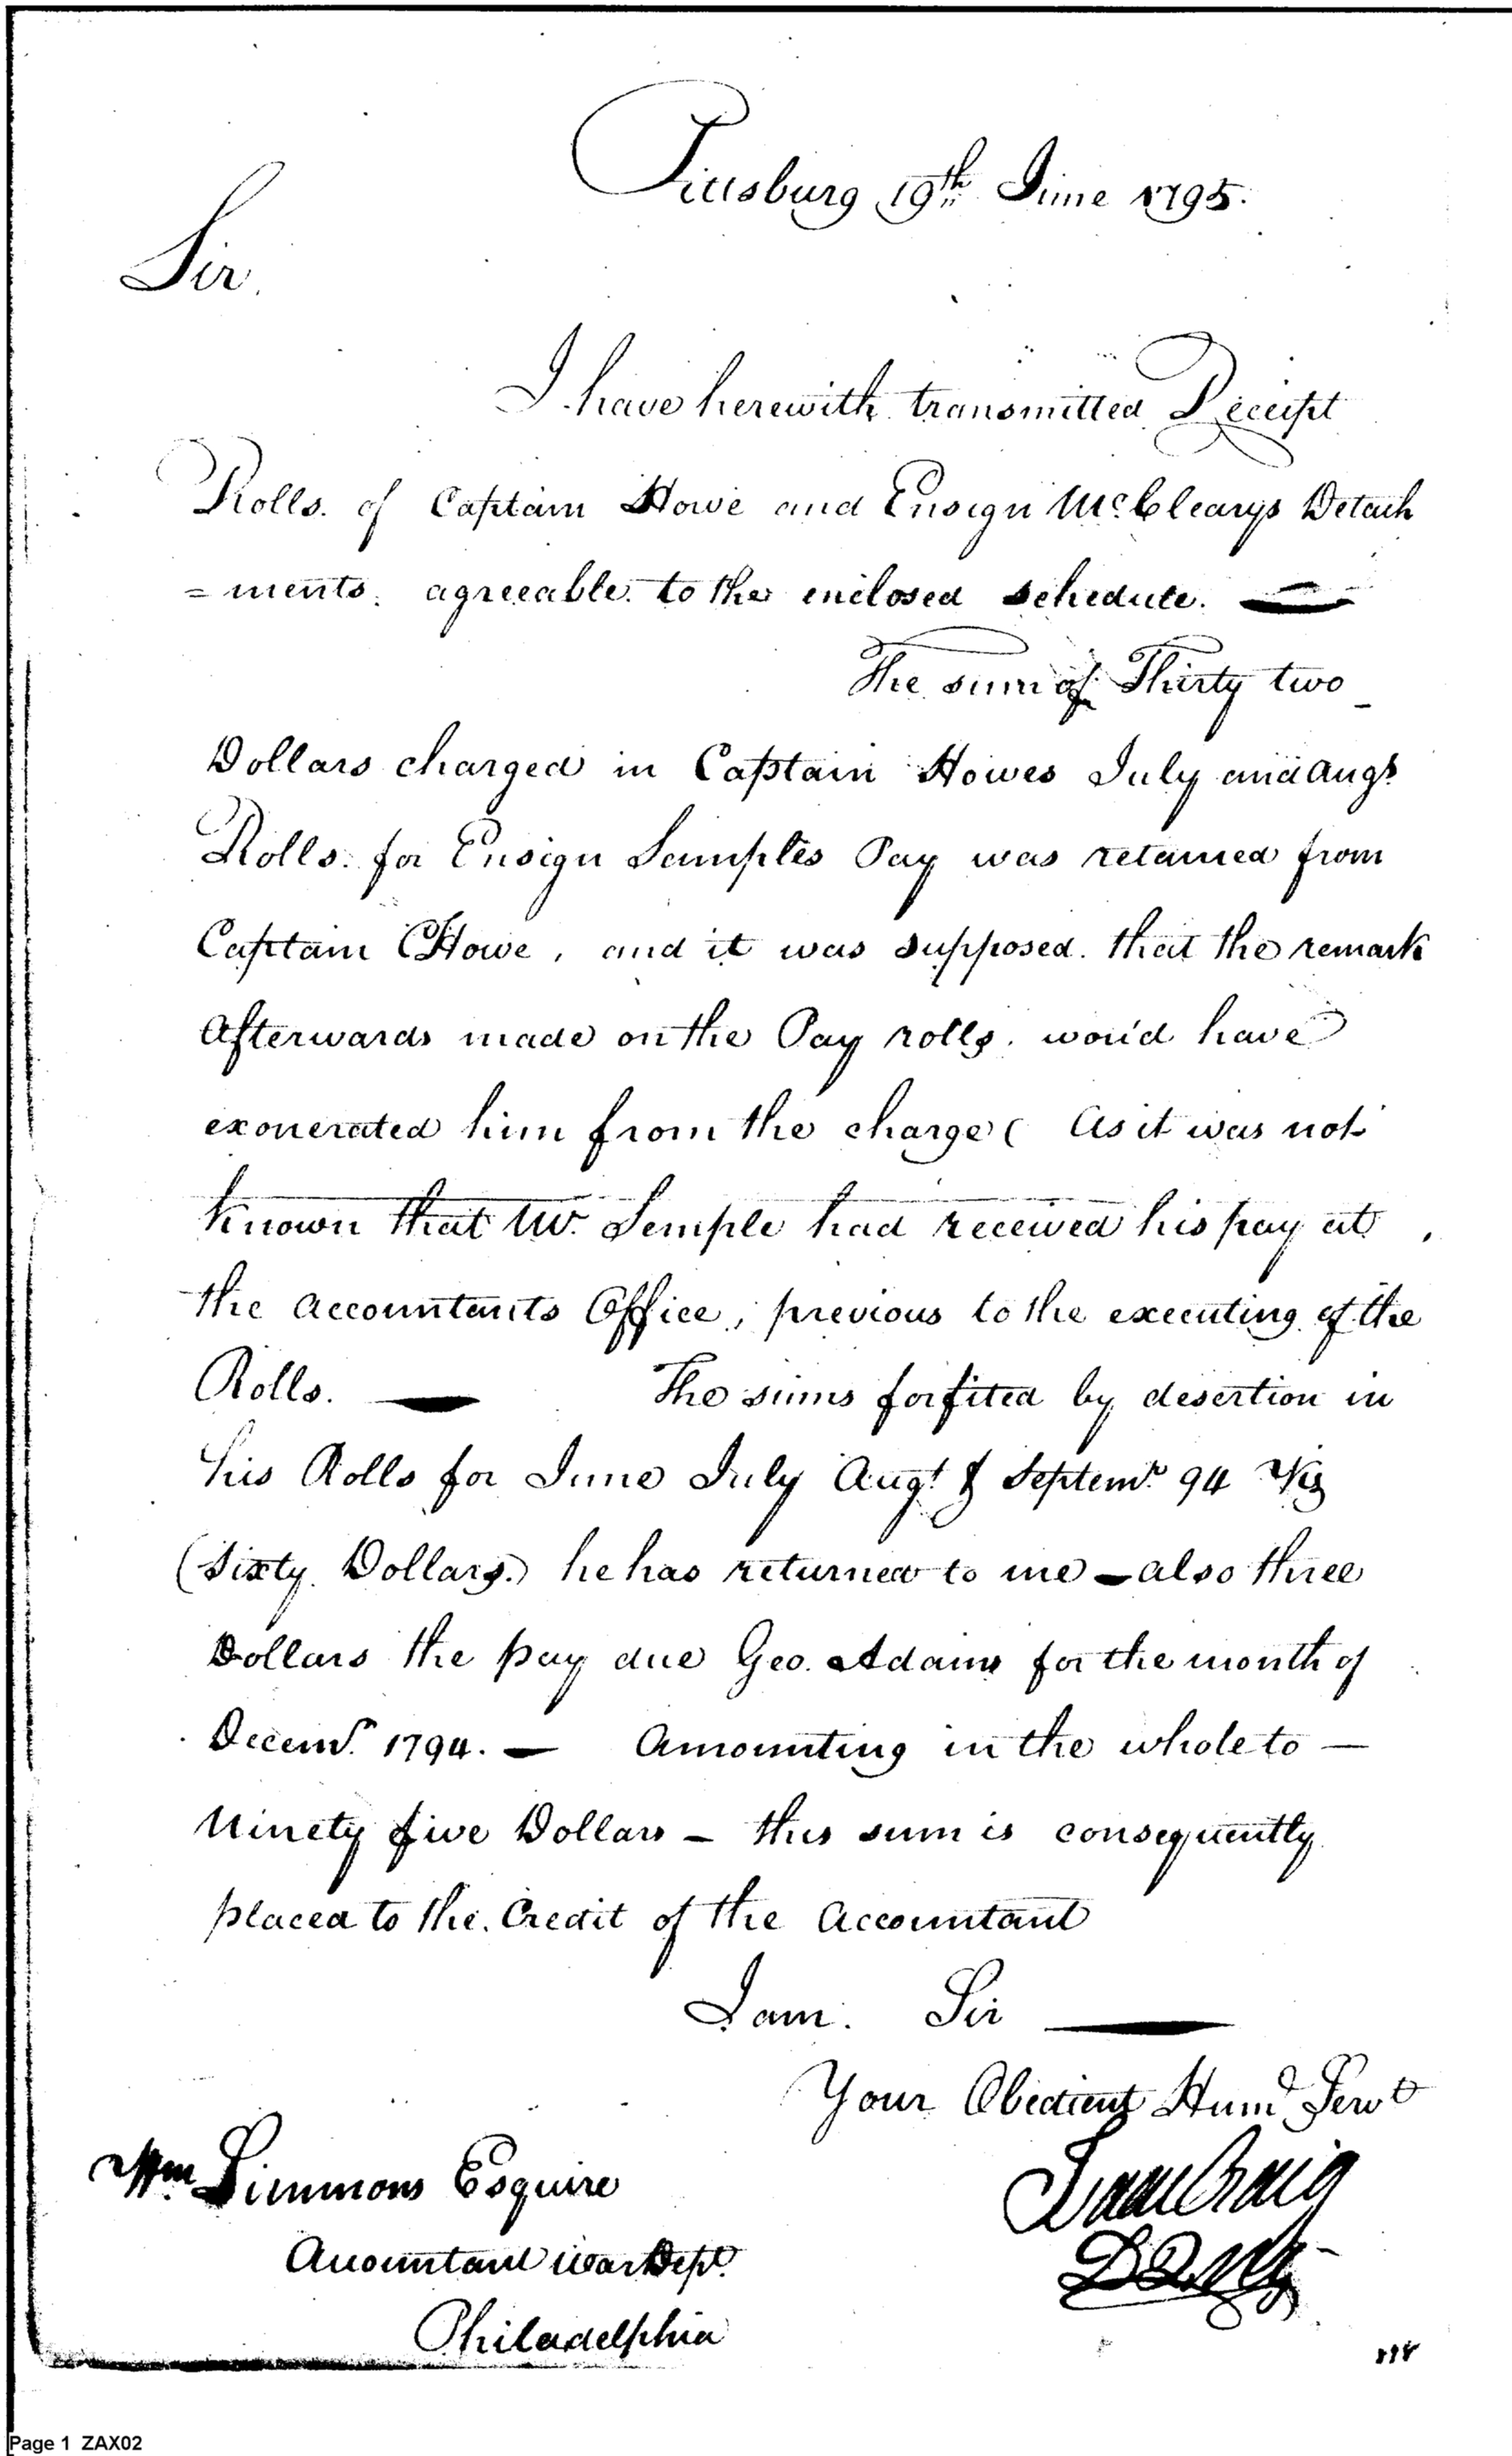 Pittsburg 19th June 1795.
Sir.
I have herewith transmitted Receipt
Rolls. of Captain Howe and Ensign McClearys Detach
=ments. agreeable to the enclosed schedule. —
The sum of Thirty two
Dollars charged in Captain Howes July and Augt
Rolls. for Ensign Samples Pay was retained from
Captain Howe, and it was supposed. that the remark
Afterwards made on the Pay rolls. wou'd have
exonerated him from the charge ( As it was not
known that Mr. Semple had received his pay at
the Accountants Office, previous to the executing of the
Rolls. — The sums forfited by desertion in
his Rolls for June July Augt. & Septemr. 94 Viz
(Sixty Dollars.) he has returned to me — also three
Dollars the pay due Geo. Adams for the month of
Decemr. 1794. — Amounting in the whole to —
Ninety five Dollars — this sum is consequently
placed to the Credit of the Accountant
I am. Sir —
Your Obedient Hum Servt
Wm. Simmons Esquire
Isaac Craig
Accountant War Dept.
DQMG
Philadelphia
Page 1 ZAX02